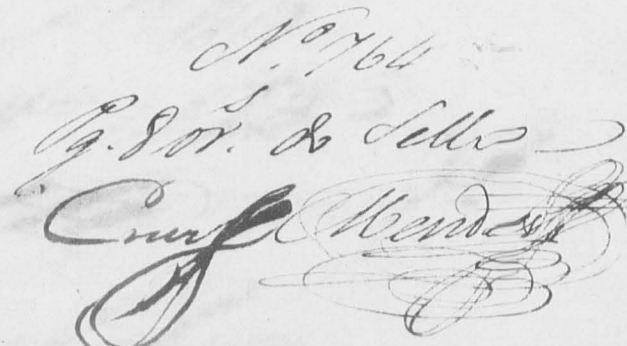 Nº 764
Pg. 80 rs. do Sello
Cruz Mendes